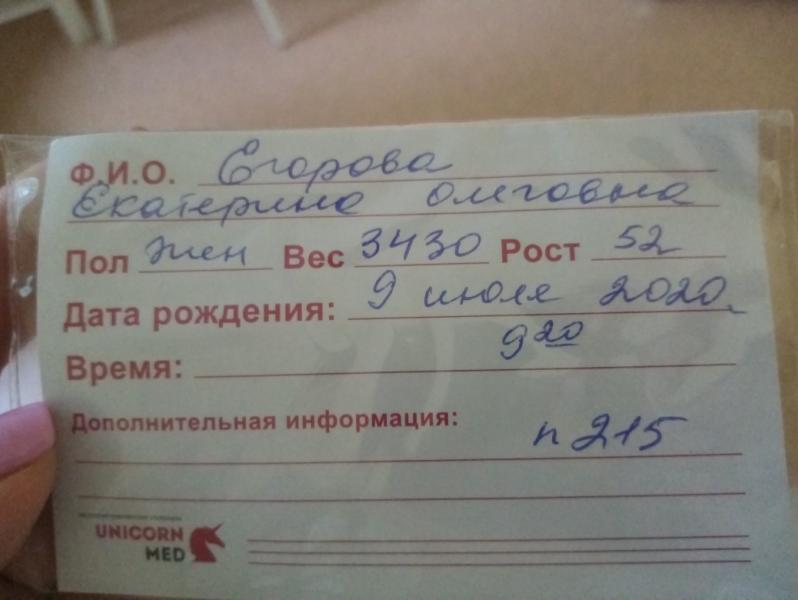 Ф.И.О. Егорова
Екатерина Олеговна
Пол жен Вес 3430 Рост 52
Дата рождения: 9 июля 2020
Время: 9 20
Дополнительная информация:
п 215
UNICORN
MED